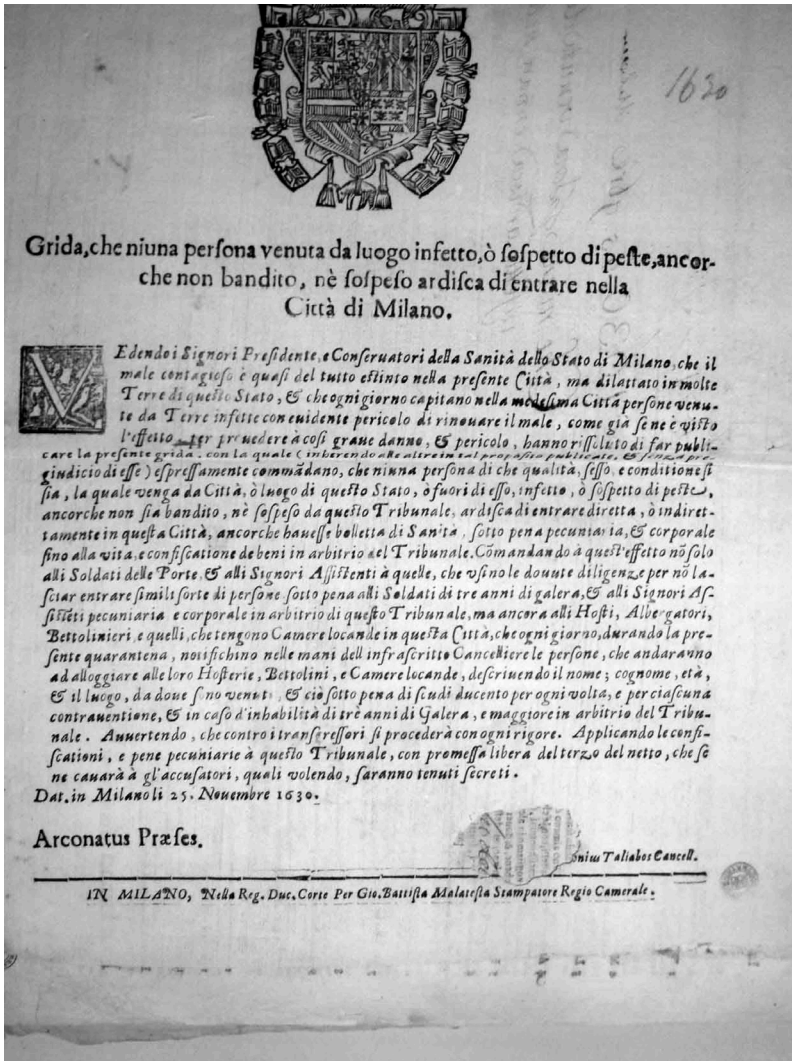 1630
Grida, che niuna perſona venuta da luogo infetto, ò ſoſpetto di peſte, ancor-
che non bandito, nè ſoſpeſo ardiſca di entrare nella
Città di Milano.
VEdendo i Signori Preſidente, e Conſeruatori della Sanità dello Stato di Milano, che il
male contagioſo è quaſi del tutto eſtinto nella preſente Città, ma dilattato in molte
Terre di queſto Stato, & che ogni giorno capitano nella medeſima Città perſone venu-
te da Terre infette con euidente pericolo di rinouare il male, come già ſe ne è viſto
l'effetto per prouedere à coſi graue danno, & pericolo, hanno riſſoluto di far publi-
care la preſente grida, con la quale (inherendo alle altre in tal propoſito publicate, & ſenza pre-
giudicio di eſſe) eſpreſſamente commãdano, che niuna perſona di che qualità, ſeſſo, e conditione ſi
ſia, la quale venga da Città, ò luogo di queſto Stato, ò fuori di eſſo, infetto, ò ſoſpetto di peſte,
ancorche non ſia bandito, nè ſoſpeſo da queſto Tribunale, ardiſca di entrare diretta, ò indiret-
tamente in queſta Città, ancorche haueſſe bolletta di Sanità, ſotto pena pecuniaria, & corporale
fino alla vita, e confiſcatione de beni in arbitrio del Tribunale. Cõmandando à queſt'effetto nõ ſolo
alli Soldati delle Porte, & alli Signori Aſſiſtenti à quelle, che vſino le douute diligenze per nõ la-
ſciar entrare ſimili ſorte di perſone ſotto pena alli Soldati di tre anni di galera, & alli Signori Aſ-
ſiſtẽti pecuniaria e corporale in arbitrio di queſto Tribunale, ma ancora alli Hoſti, Albergatori,
Bettolinieri, e quelli, che tengono Camere locande in queſta Città, che ogni giorno, durando la pre-
ſente quarantena, notifichino nelle mani dell infraſcritto Cancelliere le perſone, che andaranno
ad alloggiare alle loro Hoſterie, Bettolini, e Camere locande, deſcriuendo il nome; cognome, età,
& il luogo, da doue ſono venuti, & ciò ſotto pena di ſcudi ducento per ogni volta, e per ciaſcuna
contrauentione, & in caſo d'inhabilità di trè anni di Galera, e maggiore in arbitrio del Tribu-
nale. Auuertendo, che contro i tranſgreſſori ſi procederà con ogni rigore. Applicando le confi-
ſcationi, e pene pecuniarie à queſto Tribunale, con promeſſa libera del terzo del netto, che ſe
ne cauarà à gl'accuſatori, quali volendo, ſaranno tenuti ſecreti.
Dat. in Milano li 25. Nouembre 1630.
Arconatus Præſes.
onius Taliabos Cancell.
IN MILANO, Nella Reg. Duc. Corte Per Gio. Battiſta Malateſta Stampatore Regio Camerale.